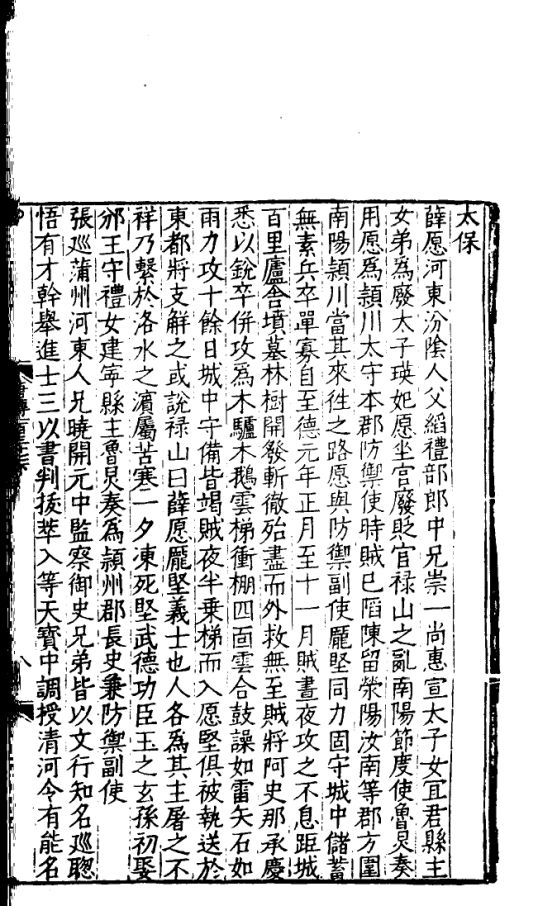 太保
薛愿河東汾陰人父縚禮部郎中兄崇一尚惠宣太子女冝君縣主
女弟爲廢太子瑛妃愿坐宫廢貶官禄山之亂南陽節度使魯炅奏
用愿爲頴川太守本郡防禦使時賊已䧟陳留滎陽汝南等郡方圍
南陽頴川當其來徃之路愿與防禦副使龎堅同力固守城中儲蓄
無素兵卒單寡自至德元年正月至十一月賊晝夜攻之不息距城
百里廬舎墳墓林樹開發斬徹殆盡而外救無至賊將阿史那承慶
悉以銳卒併攻爲木驢木鵝雲梯衝棚四面雲合鼓譟如雷矢石如
雨力攻十餘日城中守備皆竭賊夜半乗梯而入愿堅俱被執送於
東都將支解之或說禄山曰薛愿龎堅義士也人各爲其主屠之不
祥乃繫於洛水之濵屬苦寒一夕凍死堅武德功臣玉之玄孫初娶
邠王守禮女建寧縣主魯炅奏爲頴州郡長史兼防禦副使
張廵蒲州河東人兄曉開元中監察御史兄弟皆以文行知名廵聦
悟有才幹舉進士三以書判拔萃入等天寳中調授清河令有能名
八